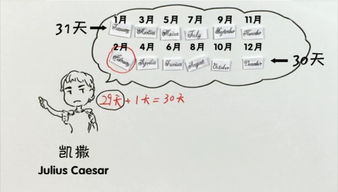 1月 3月 5月 7月 9月 11月
31天
January March July September November
2月 4月 6月 8月 10月 12月
February August October December
30天
29天+1天=30天
凯撒
Julius Caesar